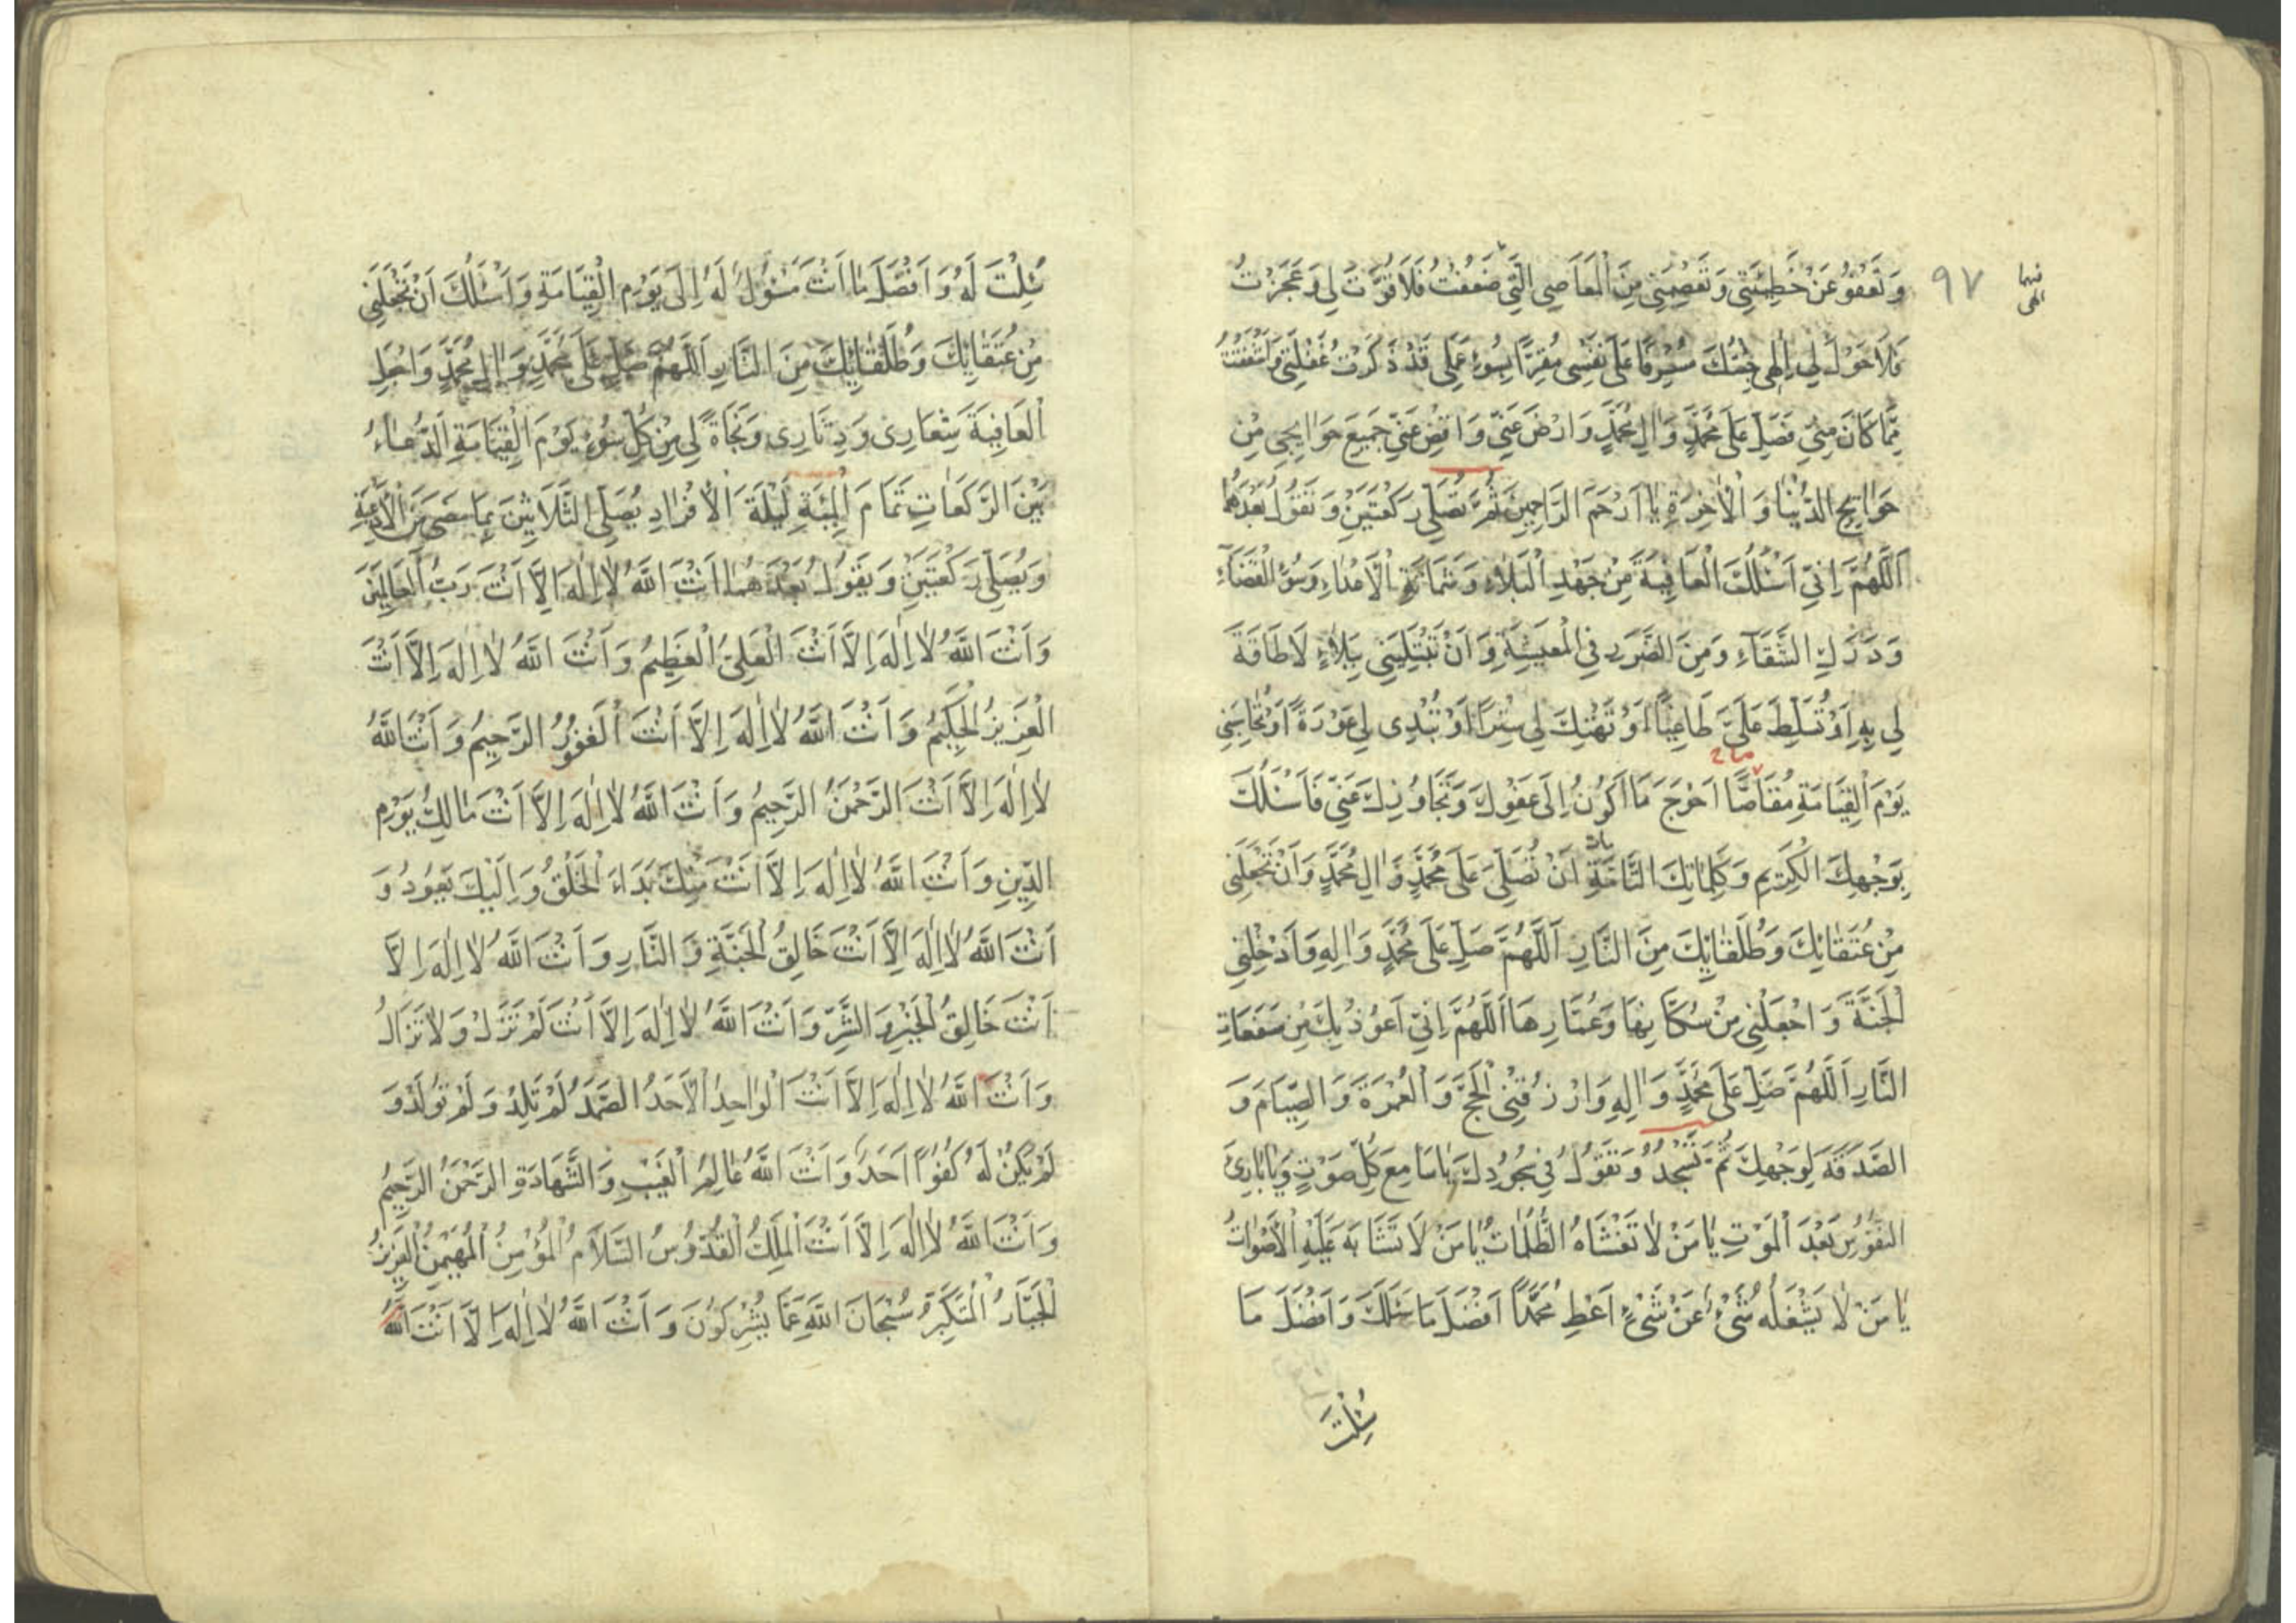 ٩٧
وَتَعْفُوَ عَنْ خَطِيئَتِي وَتَعْصِمَنِي مِنَ الْمَعَاصِي الَّتِي ضَعُفْتُ فَلَا قُوَّتَ لِي وَعَجَزْتُ
فَلَا حَوْلَ لِي اِلٰهِي جِئْتُكَ مُسْرِفًا عَلَى نَفْسِي مُقِرًّا بِسُوءِ عَمَلِي قَدْ ذَكَرْتُ غَفْلَتِي وَاَشْفَقْتُ
مِمَّا كَانَ مِنِّي فَصَلِّ عَلَى مُحَمَّدٍ وَاٰلِ مُحَمَّدٍ وَارْضَ عَنِّي وَاقْضِ عَنِّي جَمِيعَ حَوَائِجِي مِنْ
حَوَائِجِ الدُّنْيَا وَالْاٰخِرَةِ يَا اَرْحَمَ الرَّاحِمِينَ ثُمَّ تُصَلِّي رَكْعَتَيْنِ وَتَقُولُ بَعْدَهُمَا
اَللّٰهُمَّ اِنِّي اَسْئَلُكَ الْعَافِيَةَ مِنْ جَهْدِ الْبَلَاءِ وَشَمَاتَةِ الْاَعْدَاءِ وَسُوْءِ الْقَضَاءِ
وَدَرَكِ الشَّقَاءِ وَمِنَ الضَّرَرِ فِي الْمَعِيشَةِ وَاَنْ تَبْتَلِيَنِي بِبَلَاءٍ لَا طَاقَةَ
لِي بِهِ اَوْ تُسَلِّطَ عَلَيَّ طَاغِيًا اَوْ تَهْتِكَ لِي سِتْرًا اَوْ تُبْدِيَ لِي عَوْرَةً اَوْ تُحَاسِبَنِي
يَوْمَ الْقِيَامَةِ مُقَاصًّا اَحْوَجَ مَا اَكُونُ اِلَى عَفْوِكَ وَتَجَاوُزِكَ عَنِّي فَاَسْئَلُكَ
بِوَجْهِكَ الْكَرِيمِ وَكَلِمَاتِكَ التَّامَّةِ اَنْ تُصَلِّيَ عَلَى مُحَمَّدٍ وَاٰلِ مُحَمَّدٍ وَاَنْ تَجْعَلَنِي
مِنْ عُتَقَائِكَ وَطُلَقَائِكَ مِنَ النَّارِ اَللّٰهُمَّ صَلِّ عَلَى مُحَمَّدٍ وَاٰلِهِ وَاَدْخِلْنِي
الْجَنَّةَ وَاجْعَلْنِي مِنْ سُكَّانِهَا وَعُمَّارِهَا اَللّٰهُمَّ اِنِّي اَعُوذُ بِكَ مِنْ سَفَعَاتِ
النَّارِ اَللّٰهُمَّ صَلِّ عَلَى مُحَمَّدٍ وَاٰلِهِ وَارْزُقْنِي الْحَجَّ وَالْعُمْرَةَ وَالصِّيَامَ وَ
الصَّدَقَةَ لِوَجْهِكَ ثُمَّ تَسْجُدُ وَتَقُولُ فِي سُجُودِكَ يَا سَامِعَ كُلِّ صَوْتٍ وَيَا بَارِئَ
النُّفُوسِ بَعْدَ الْمَوْتِ يَا مَنْ لَا تَغْشَاهُ الظُّلُمَاتُ يَا مَنْ لَا تَشَابَهُ عَلَيْهِ الْاَصْوَاتُ
يَا مَنْ لَا يَشْغَلُهُ شَيْءٌ عَنْ شَيْءٍ اَعْطِ مُحَمَّدًا اَفْضَلَ مَا سَئَلَكَ وَاَفْضَلَ مَا
سُئِلْتَ
سُئِلْتَ لَهُ وَاَفْضَلَ مَا اَنْتَ مَسْؤُلٌ لَهُ اِلَى يَوْمِ الْقِيَامَةِ وَاَسْئَلُكَ اَنْ تَجْعَلَنِي
مِنْ عُتَقَائِكَ وَطُلَقَائِكَ مِنَ النَّارِ اَللّٰهُمَّ صَلِّ عَلَى مُحَمَّدٍ وَاٰلِ مُحَمَّدٍ وَاجْعَلِ
الْعَافِيَةَ شِعَارِي وَدِثَارِي وَنَجَاةً لِي مِنْ كُلِّ سُوءٍ يَوْمَ الْقِيَامَةِ الدُّعَاءُ
بَيْنَ الرَّكَعَاتِ تَمَامَ الْمِئَةِ لَيْلَةَ الْاَفْرَادِ يُصَلِّي الثَّلَاثِينَ بِمَا مَضَى مِنَ الْاَدْعِيَةِ
وَيُصَلِّي رَكْعَتَيْنِ وَيَقُولُ بَعْدَهُمَا اَنْتَ اللّٰهُ لَا اِلٰهَ اِلَّا اَنْتَ رَبُّ الْعَالَمِينَ
وَاَنْتَ اللّٰهُ لَا اِلٰهَ اِلَّا اَنْتَ الْعَلِيُّ الْعَظِيمُ وَاَنْتَ اللّٰهُ لَا اِلٰهَ اِلَّا اَنْتَ
الْعَزِيزُ الْحَكِيمُ وَاَنْتَ اللّٰهُ لَا اِلٰهَ اِلَّا اَنْتَ الْغَفُورُ الرَّحِيمُ وَاَنْتَ اللّٰهُ
لَا اِلٰهَ اِلَّا اَنْتَ الرَّحْمٰنُ الرَّحِيمُ وَاَنْتَ اللّٰهُ لَا اِلٰهَ اِلَّا اَنْتَ مَالِكُ يَوْمِ
الدِّينِ وَاَنْتَ اللّٰهُ لَا اِلٰهَ اِلَّا اَنْتَ مِنْكَ بَدَاءَ الْخَلْقُ وَاِلَيْكَ يَعُودُ وَ
اَنْتَ اللّٰهُ لَا اِلٰهَ اِلَّا اَنْتَ خَالِقُ الْجَنَّةِ وَالنَّارِ وَاَنْتَ اللّٰهُ لَا اِلٰهَ اِلَّا
اَنْتَ خَالِقُ الْخَيْرِ وَالشَّرِّ وَاَنْتَ اللّٰهُ لَا اِلٰهَ اِلَّا اَنْتَ لَمْ تَزَلْ وَلَا تَزَالُ
وَاَنْتَ اللّٰهُ لَا اِلٰهَ اِلَّا اَنْتَ الْوَاحِدُ الْاَحَدُ الصَّمَدُ لَمْ تَلِدْ وَلَمْ تُولَدْ وَ
لَمْ يَكُنْ لَهُ كُفُوًا اَحَدٌ وَاَنْتَ اللّٰهُ عَالِمُ الْغَيْبِ وَالشَّهَادَةِ الرَّحْمٰنُ الرَّحِيمُ
وَاَنْتَ اللّٰهُ لَا اِلٰهَ اِلَّا اَنْتَ الْمَلِكُ الْقُدُّوسُ السَّلَامُ الْمُؤْمِنُ الْمُهَيْمِنُ الْعَزِيزُ
الْجَبَّارُ الْمُتَكَبِّرُ سُبْحَانَ اللّٰهِ عَمَّا يُشْرِكُونَ وَاَنْتَ اللّٰهُ لَا اِلٰهَ اِلَّا اَنْتَ اللّٰهُ